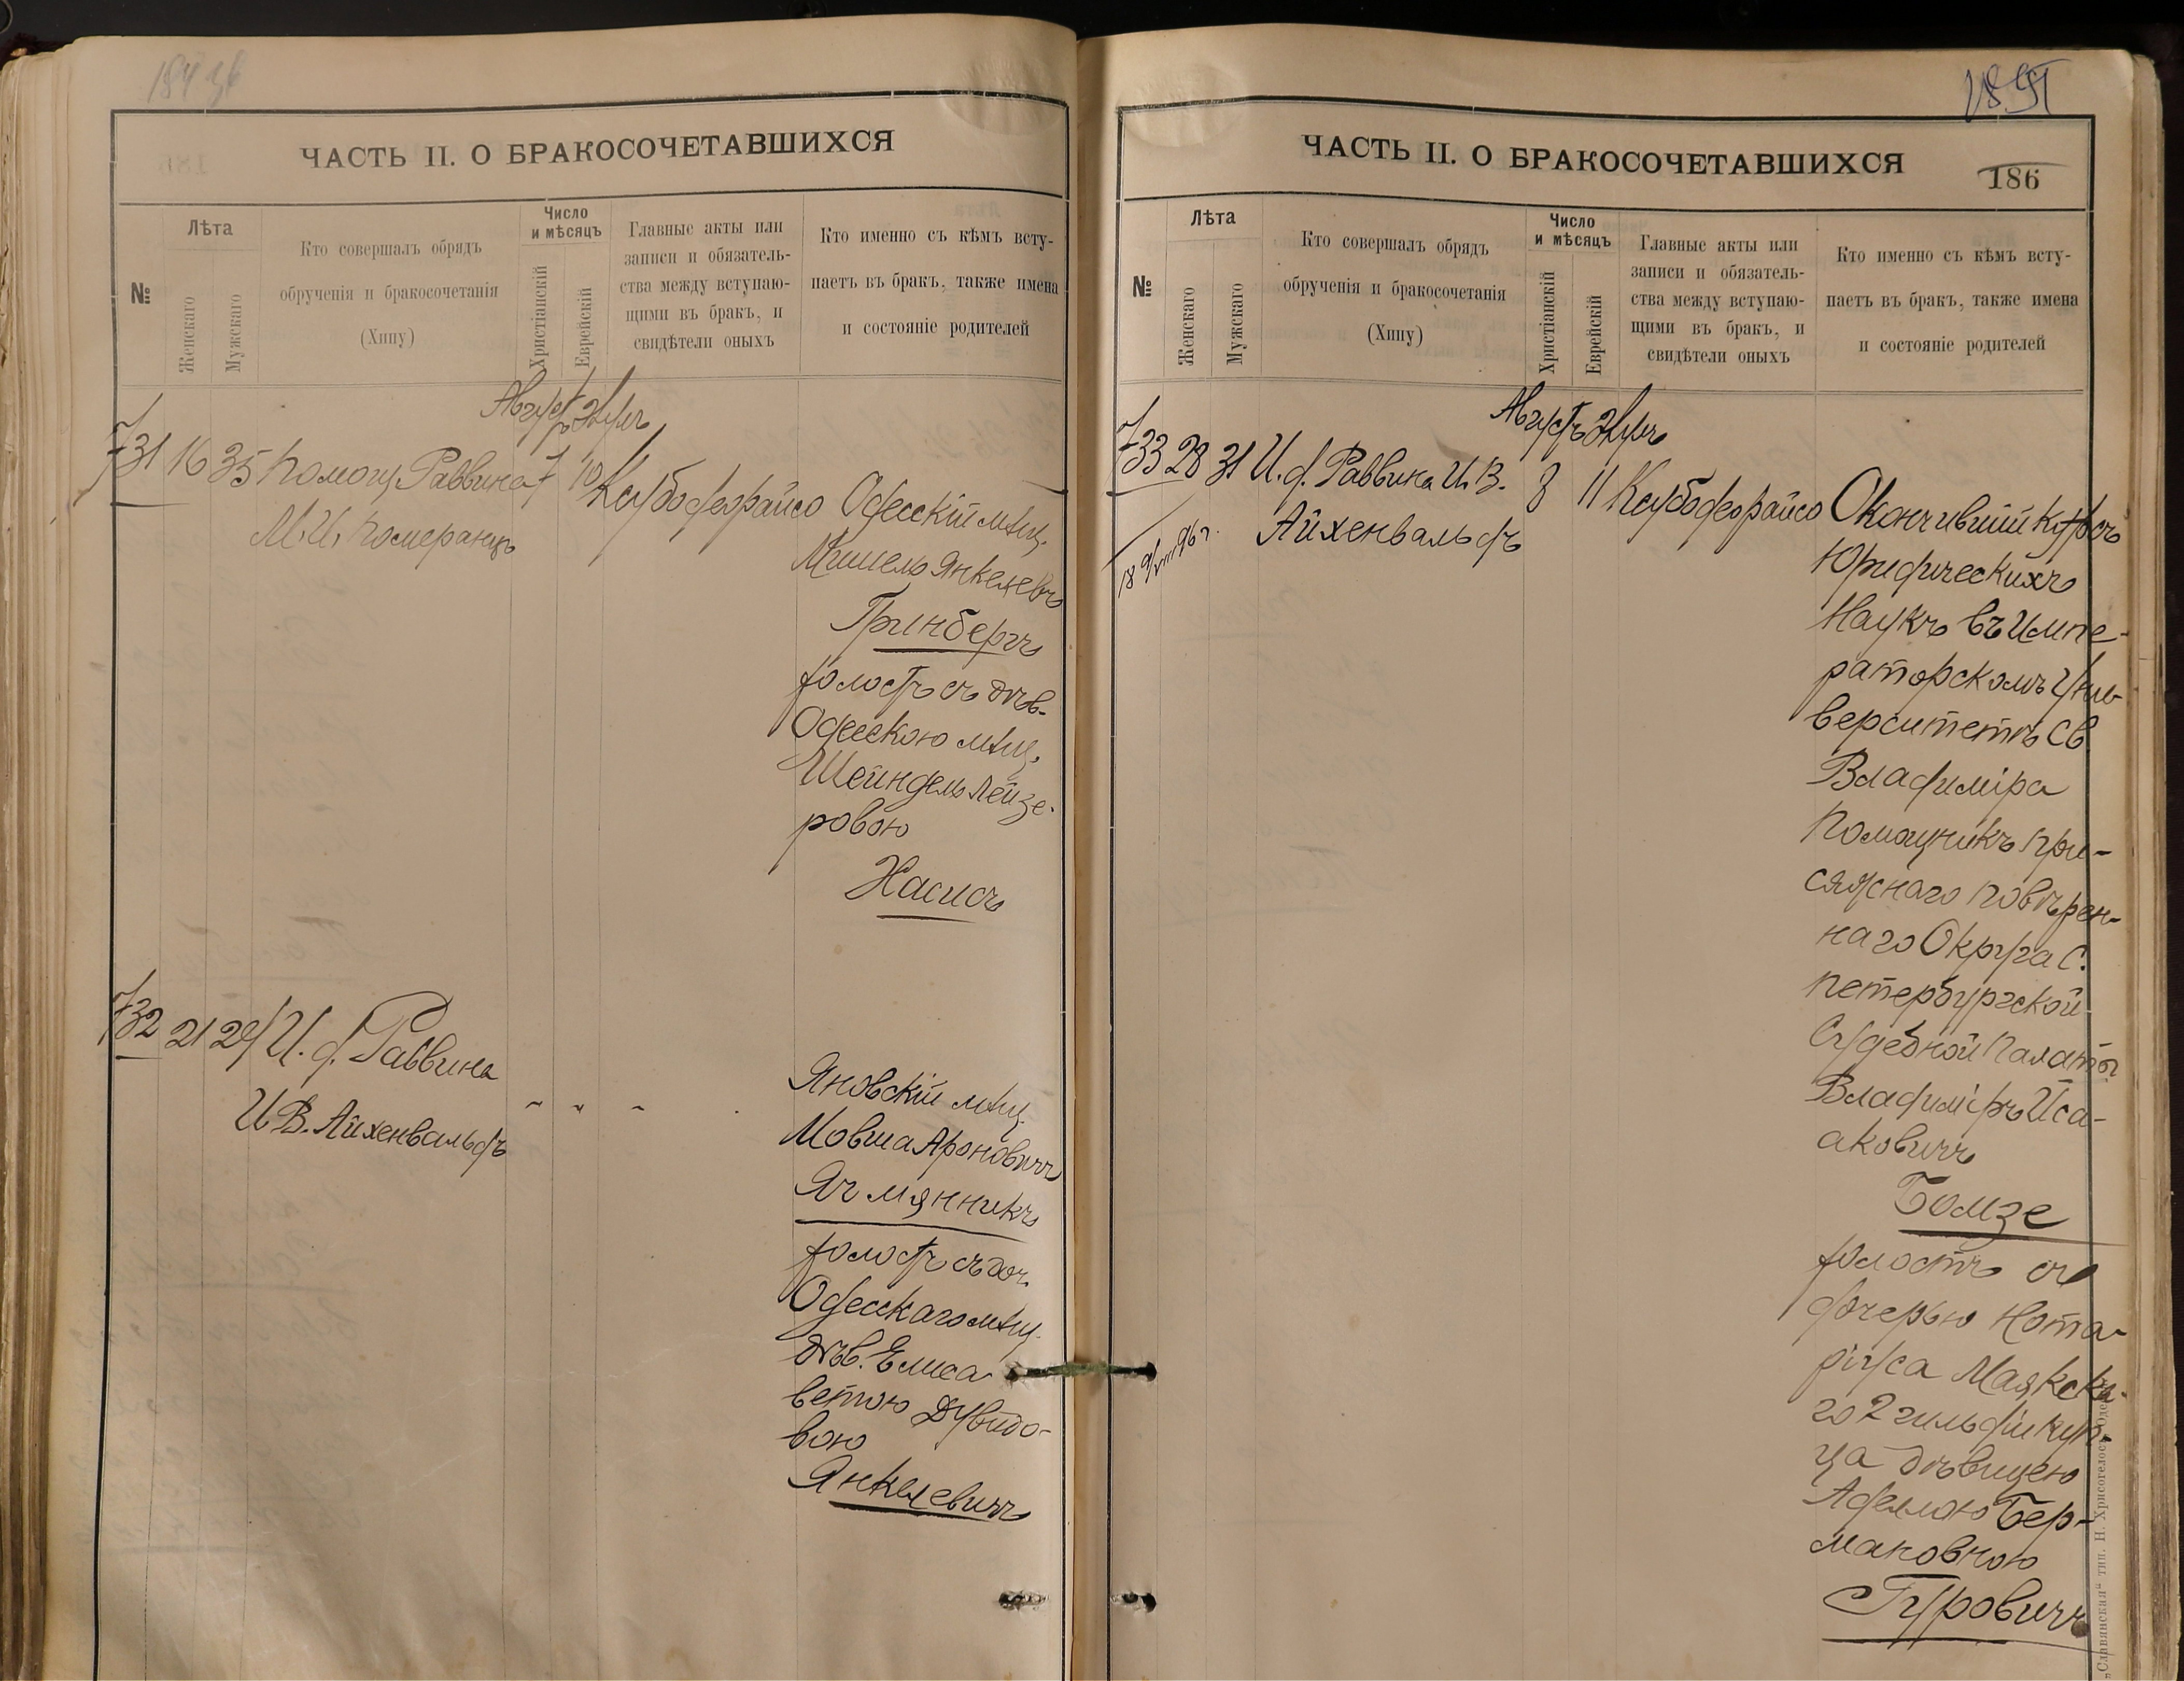 ЧАСТЬ II. О БРАКОСОЧЕТАВШИХСЯ
№
Лѣта
Женскаго
Мужскаго
Кто совершалъ обрядъ
обрученія и бракосочетанія
(Хипу)
Число
и мѣсяцъ
Христіанскій
Еврейскій
Главные акты или
записи и обязатель-
ства между вступаю-
щими въ бракъ, и
свидѣтели оныхъ
Кто именно съ кѣмъ всту-
паетъ въ бракъ, также имена
и состояніе родителей
Августъ Элулъ
731 16 35 Помощ. Раввина 7 10 Ксубо деорайсо
М. И. Померанцъ
Одесскій мѣщ.
Мишель Янкелевъ
Гринбергъ
холостъ съ дѣв.
Одесскою мѣщ.
Шейндель Лейзе-
ровою
Хасисъ
732 21 29 И. д. Раввина
И. В. Айхенвальдъ
" " "
Яновскій мѣщ.
Мовша Ароновичъ
Ячмянникъ
холостъ съ доч.
Одесскаго мѣщ.
дѣв. Елиса
ветою Дувидо-
вою
Янкелевичъ
ЧАСТЬ II. О БРАКОСОЧЕТАВШИХСЯ
186
№
Лѣта
Женскаго
Мужскаго
Кто совершалъ обрядъ
обрученія и бракосочетанія
(Хипу)
Число
и мѣсяцъ
Христіанскій
Еврейскій
Главные акты или
записи и обязатель-
ства между вступаю-
щими въ бракъ, и
свидѣтели оныхъ
Кто именно съ кѣмъ всту-
паетъ въ бракъ, также имена
и состояніе родителей
Августъ Элулъ
733 28 31 И. д. Раввина И. В. 8 11 Ксубо деорайсо
Айхенвальдъ
Окончившій курсъ
Юридическихъ
Наукъ въ Импе-
раторскомъ Уни-
верситетѣ Св.
Владиміра
Помощникъ При-
сяжнаго Повѣрен-
наго Округа С.
Петербургской
Судебной Палаты
Владиміръ Иса-
аковичъ
Бомзе
холостъ съ
дочерью Нота-
ріуса Маякска-
го 2 гильдіи куп-
ца дѣвицею
Аделью Бер-
мановною
Гуровичъ
„Славянская“ тип. Н. Хрисогелосъ, Одесса